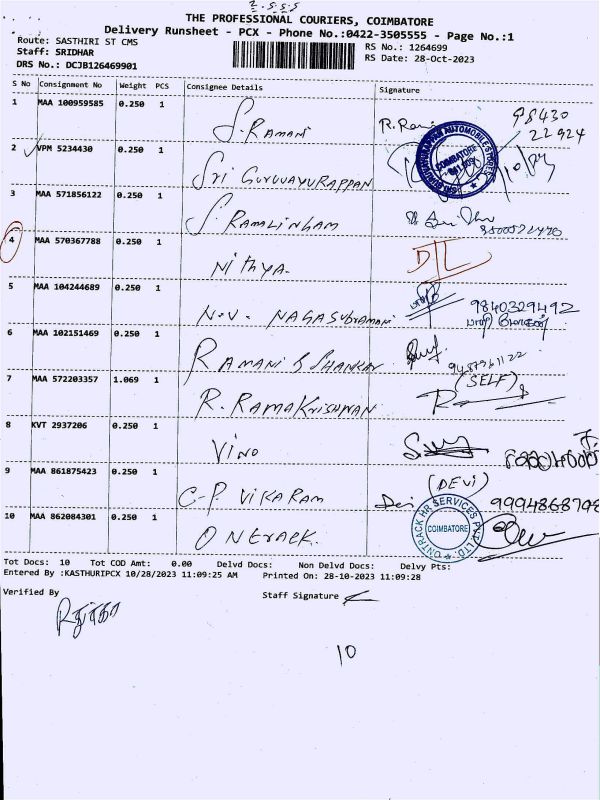 THE PROFESSIONAL COURIERS, COIMBATORE
Delivery Runsheet - PCX - Phone No.:0422-3505555 - Page No.:1
Route: SASTHIRI ST CMS
RS No.: 1264699
Staff: SRIDHAR
RS Date: 28-Oct-2023
DRS No.: DCJB126469901
S No Consignment No Weight PCS Consignee Details Signature
1 MAA 100959585 0.250 1 S. RAMANI R. Rani 98430
22924
2 VPM 5234430 0.250 1 Sri GURUVAYURAPPAN
COIMBATORE
3 MAA 571856122 0.250 1 S. RAMALINGAM
4 MAA 570367788 0.250 1 NiThYA. DTL
5 MAA 104244689 0.250 1 N.V. NAGASUBRAMANI 9840329492
6 MAA 102151469 0.250 1 RAMANI & SHANKAR
7 MAA 572203357 1.069 1 R. RAMAKRISHNAN (SELF)
8 KVT 2937206 0.250 1 VINO
9 MAA 861875423 0.250 1 C.P. VIKARAM Devi (DEVI) 9994868798
10 MAA 862084301 0.250 1 ONTRACK.
ONTRACK HR SERVICES PVT. LTD.
COIMBATORE
Tot Docs: 10 Tot COD Amt: 0.00 Delvd Docs: Non Delvd Docs: Delvy Pts:
Entered By :KASTHURIPCX 10/28/2023 11:09:25 AM Printed On: 28-10-2023 11:09:28
Verified By Staff Signature
10